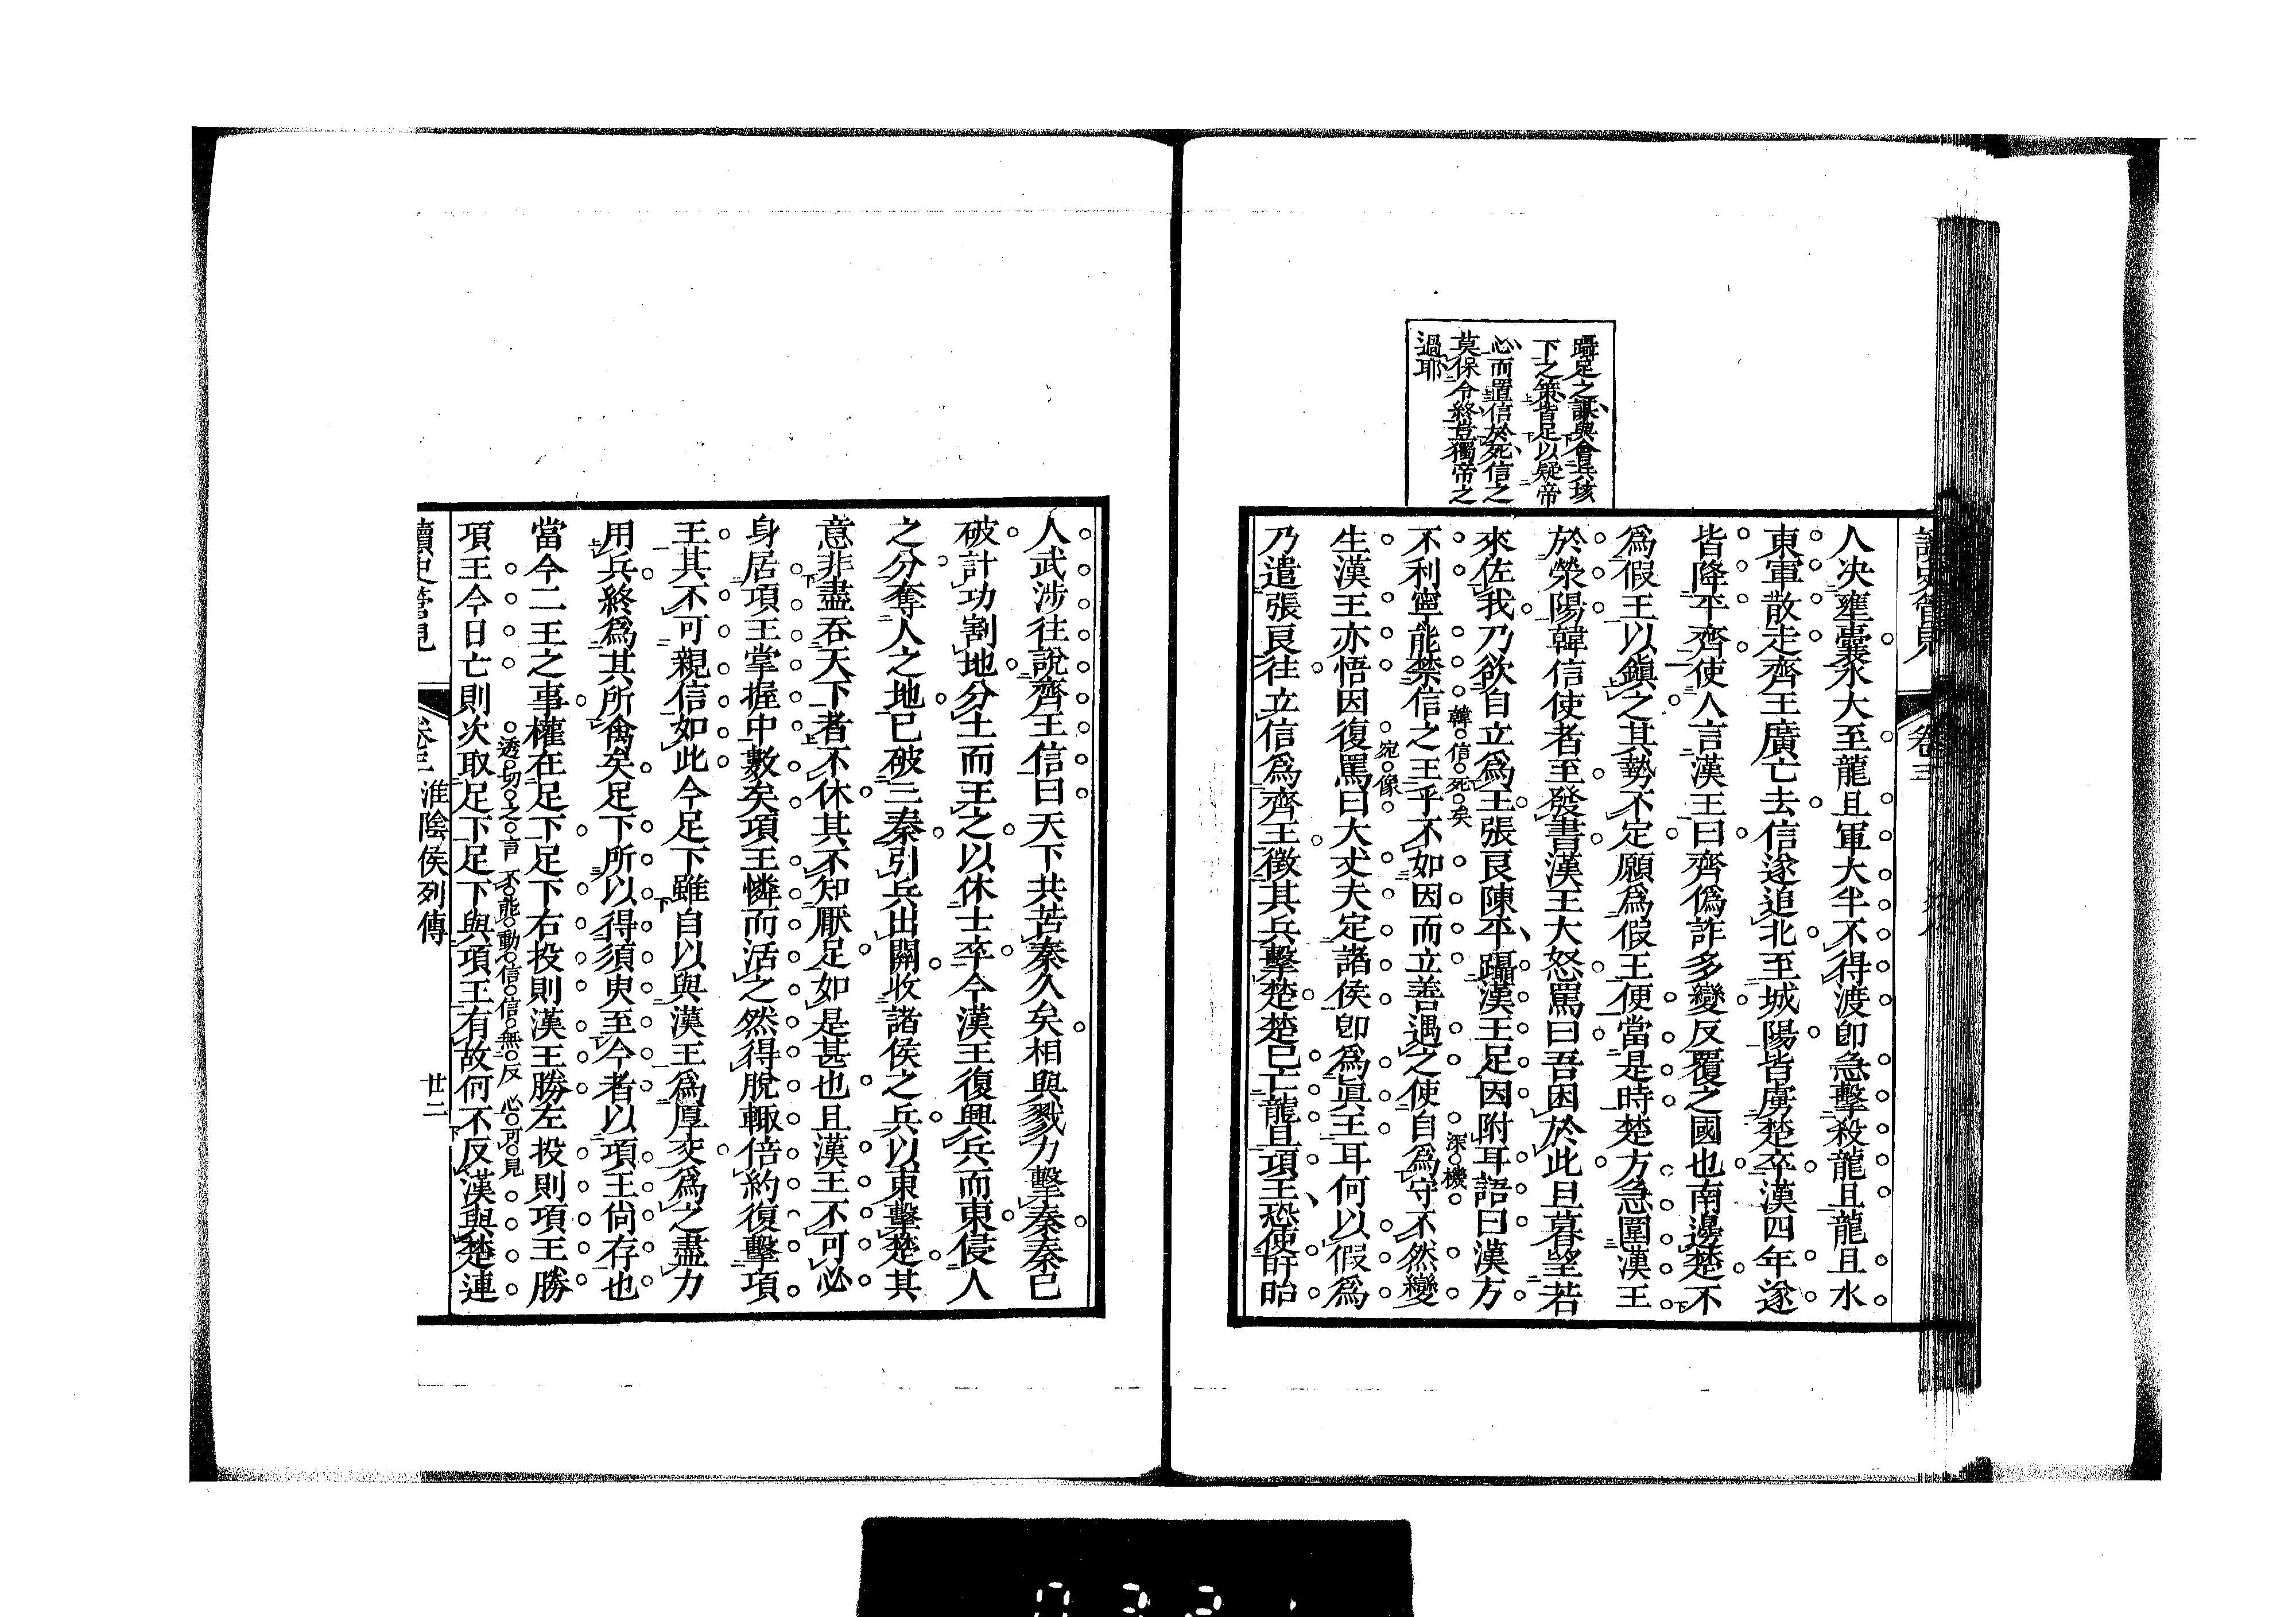 讀史管見 卷三
躡足之謀與會兵垓
下之策皆足以疑帝
心而置信於死信之
莫保令終豈獨帝之
過耶
人決壅囊水大至龍且軍大半不得渡卽急擊殺龍且龍且水
東軍散走齊王廣亡去信遂追北至城陽皆虜楚卒漢四年遂
皆降平齊使人言漢王曰齊僞詐多變反覆之國也南邊楚不
爲假王以鎭之其勢不定願爲假王便當是時楚方急圍漢王
於滎陽韓信使者至發書漢王大怒罵曰吾困於此旦暮望若
來佐我乃欲自立爲王張良陳平躡漢王足因附耳語曰漢方
韓信死矣 深機
不利寧能禁信之王乎不如因而立善遇之使自爲守不然變
宛像
生漢王亦悟因復罵曰大丈夫定諸侯卽爲眞王耳何以假爲
乃遣張良往立信爲齊王徵其兵擊楚楚已亡龍且項王恐使盱眙
人武涉往說齊王信曰天下共苦秦久矣相與戮力擊秦秦已
破計功割地分土而王之以休士卒今漢王復興兵而東侵人
之分奪人之地已破三秦引兵出關收諸侯之兵以東擊楚其
意非盡吞天下者不休其不知厭足如是甚也且漢王不可必
身居項王掌握中數矣項王憐而活之然得脫輙倍約復擊項
王其不可親信如此今足下雖自以與漢王爲厚交爲之盡力
用兵終爲其所禽矣足下所以得須臾至今者以項王尙存也
當今二王之事權在足下足下右投則漢王勝左投則項王勝
透切之言 不能動信信無反心可見
項王今日亡則次取足下足下與項王有故何不反漢與楚連
讀史管見 卷三 淮陰侯列傳 廿二